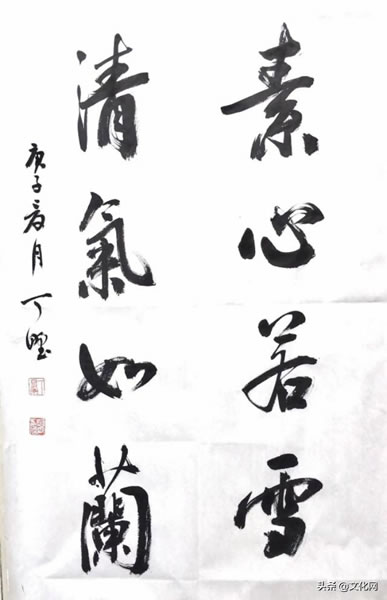 素心若雪
清氣如蘭
庚子夏月 丁
头条 @文化网